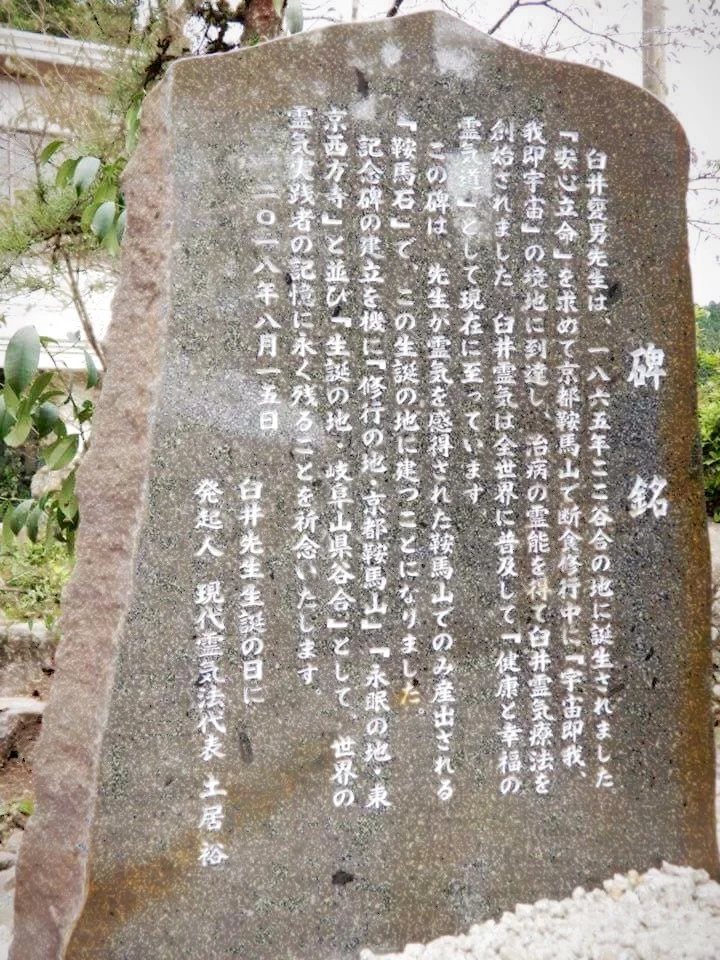 碑銘
臼井甕男先生は、一八六五年ここ谷合の地に誕生されました
『安心立命』を求めて京都鞍馬山で断食修行中に『宇宙即我、
我即宇宙』の境地に到達し、治病の霊能を得て臼井霊気療法を
創始されました 臼井霊気は全世界に普及して『健康と幸福の
霊気道』として現在に至っています
この碑は、先生が霊気を感得された鞍馬山でのみ産出される
『鞍馬石』で、この生誕の地に建つことになりました。
記念碑の建立を機に『修行の地・京都鞍馬山』『永眠の地・東
京西方寺』と並び『生誕の地・岐阜山県谷合』として、世界の
霊気実践者の記憶に永く残ることを祈念いたします。
二〇一八年八月一五日
臼井先生生誕の日に
発起人 現代霊気法代表 土居裕